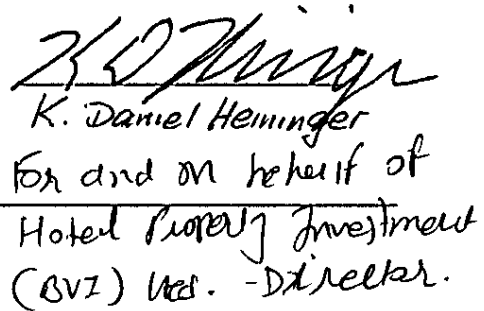 K. Daniel Heininger
For and on behalf of
Hotel Property Investment
(BVI) Ltd. - Director.